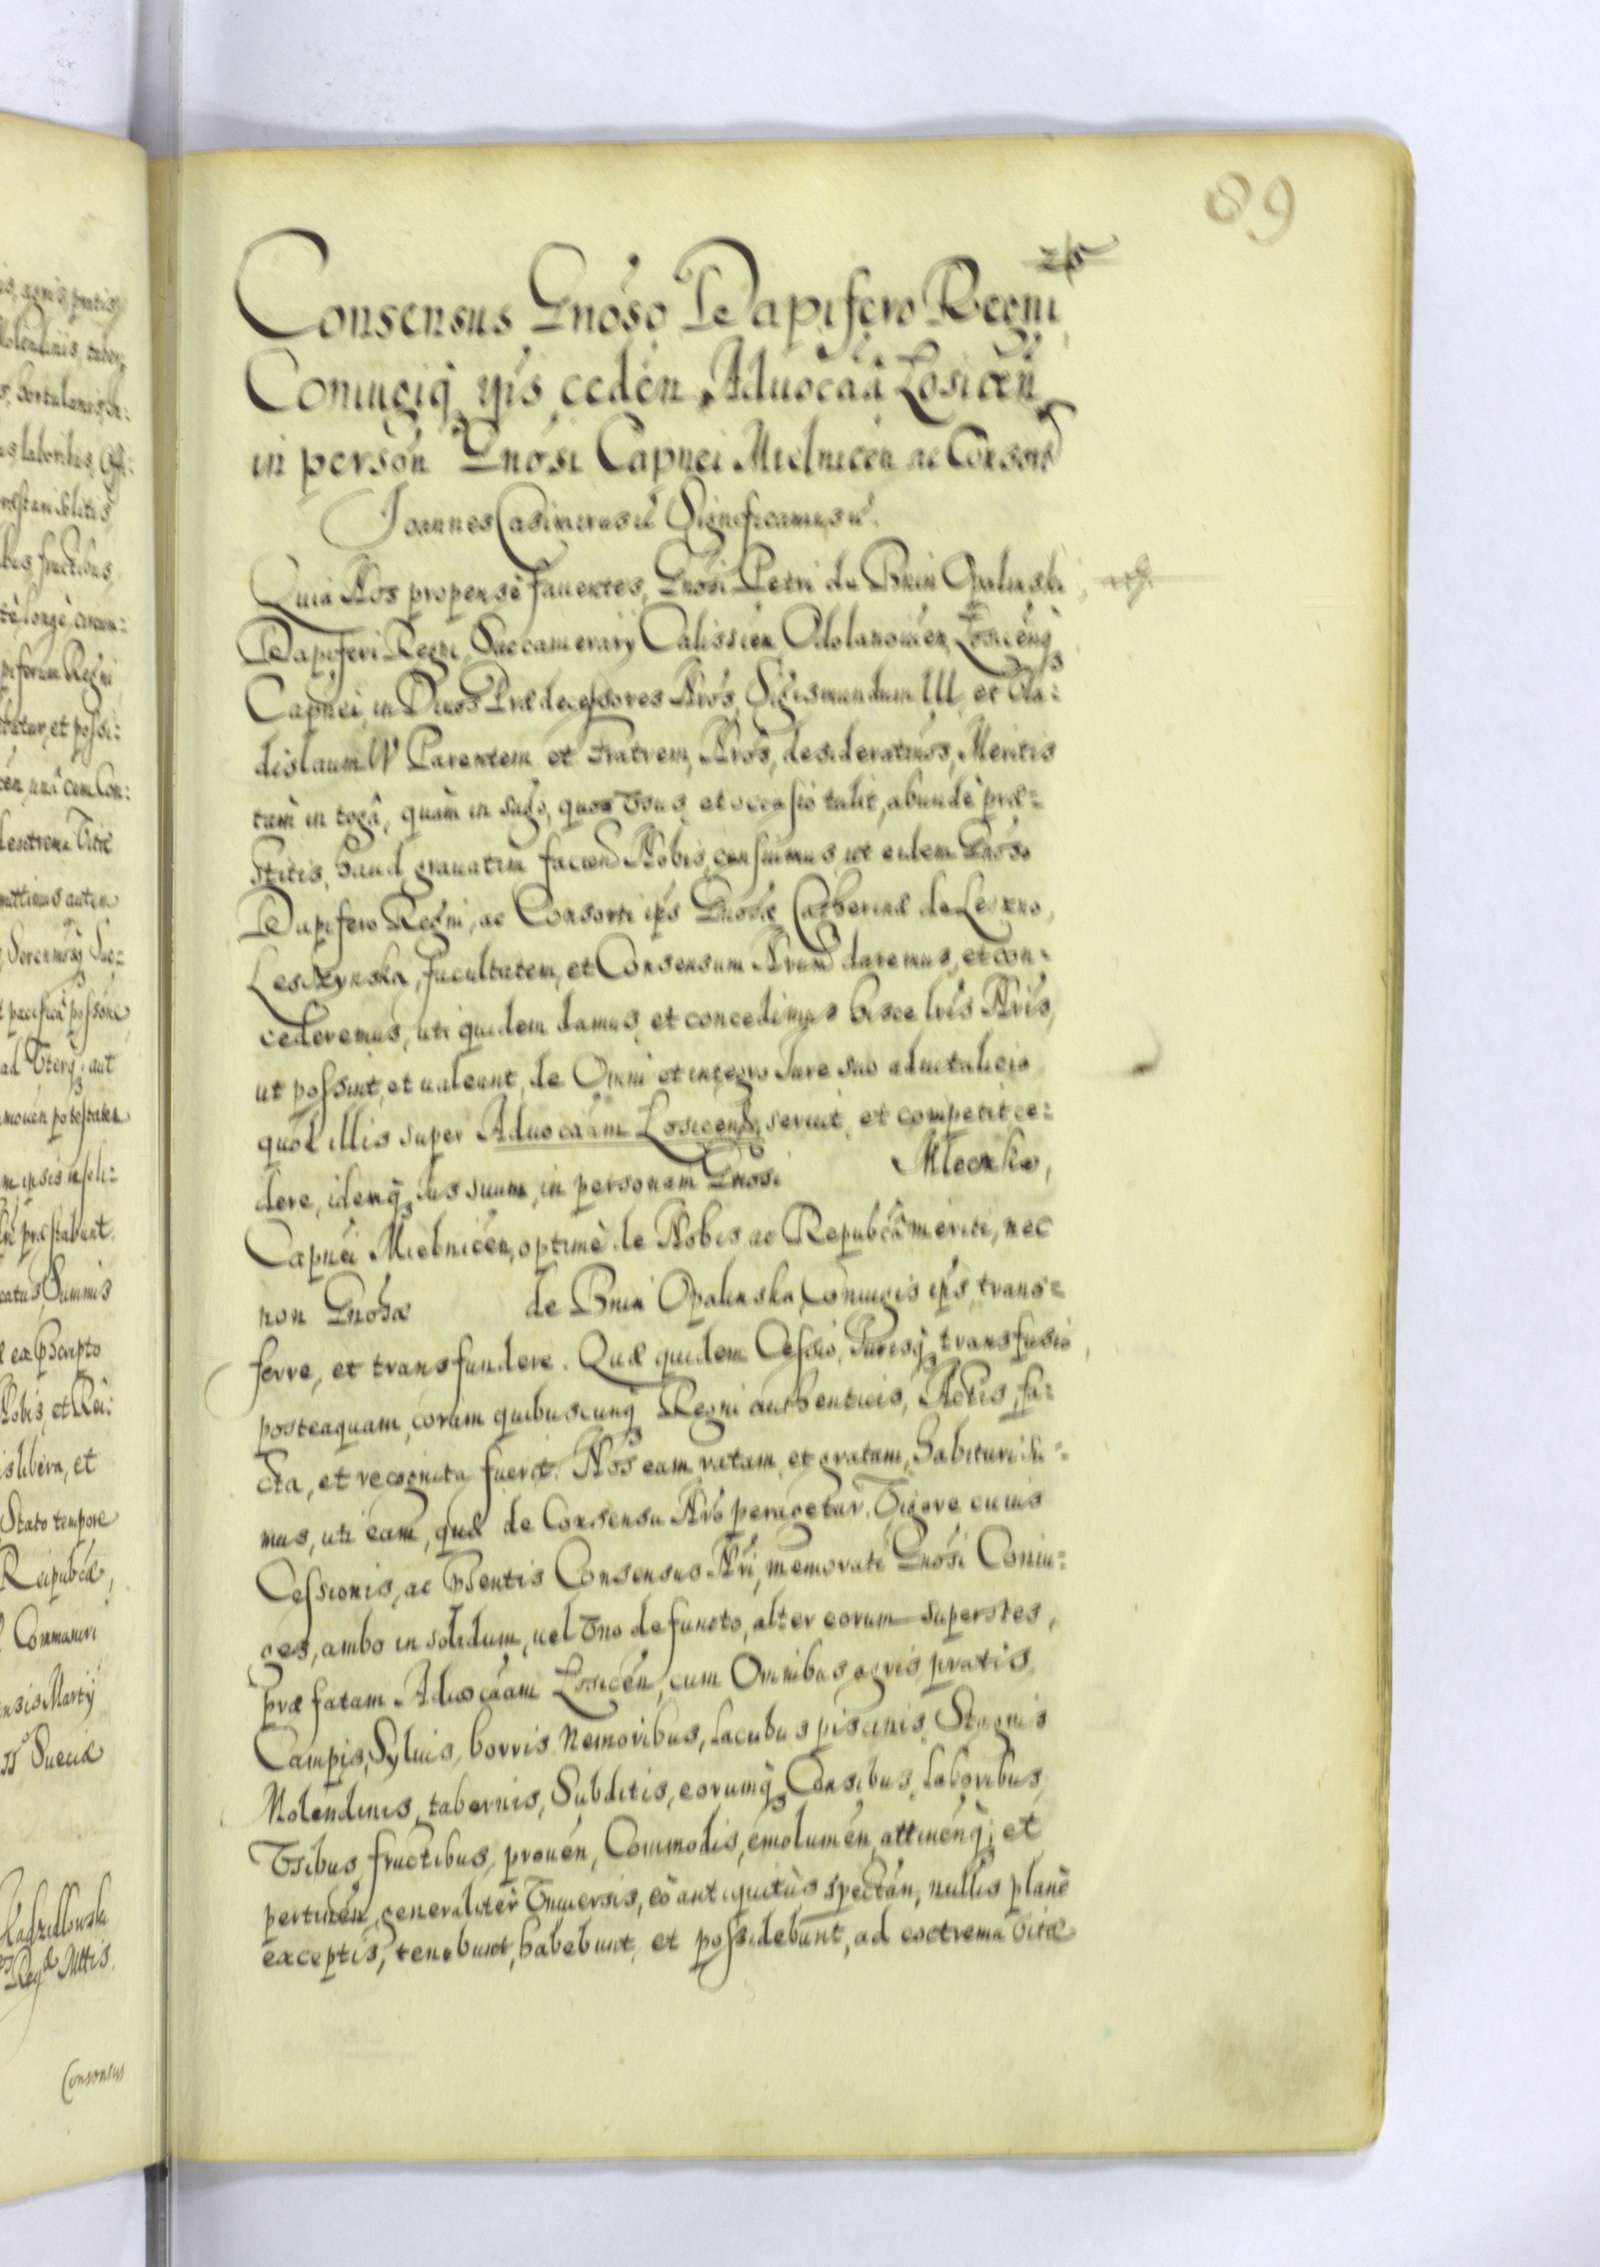 89
Consensus Gnoso Dapifero Regni
Coniugiq ipis ceden Aduocaa Losicen
in person Gnosi Capnei Mielnicen ac Consort
Joannes Casimirus Significamus
Quia Nos propensè fauentes, Gnosi Petri de Bnin Opalinski
Dapiferi Regni, Succamerarij Calissien Odolanouien, Losicenq
Capnei, in Diuos Prædecessores Nros, Sigismundum III et Vla=
dislaum IV Parentem et Fratrem, Nros, desideratmos, Meritis
tam in togâ, quàm in sago, quos Vsus, et occasio tulit, abundè præ=
stitis, haud grauatim facien Nobis censuimus, ut eidem Gnoso
Dapifero Regni, ac Consorti ips Gnosæ Catherinæ de Leszno,
Lesczynska, facultatem, et Consensum Nrum daremus, et con=
cederemus, uti quidem damus, et concedimus hisce lris Nris,
ut possint, et ualeant, de Omni et integro Iure suo aduitalicio
quod illis super Aduocaam Losicens, seruit, et competit ce=
dere, idenq Ius suum, in personam Gnosi Mleczko,
Capnei Mielnicen, optimè de Nobis ac Republca meriti, nec
non Gnosæ de Bnin Opalinska, Coniugis ips, trans=
ferre, et transfundere. Quæ quidem Cessio, Iurisq transfusio,
posteaquam, coram quibuscunq Regni authenticis, Actis, fa=
cta, et recognita fuerit. Nos eam ratam, et gratam, habituri su=
mus, uti eam, quæ de Consensu Nro peragetur. Vigore cuius
Cessionis, ac pntis Consensus Nri, memorati Gnosi Coniu=
ges, ambo in solidum, uel Vno defuncto, alter eorum superstes,
præfatam Aduocaam Losicen, cum Omnibus agris pratis,
Campis, Syluis, borris, Nemoribus, Lacubus piscinis, Stagnis
Molendinis, tabernis, Subditis, eorumq Censibus, laboribus,
Vsibus, fructibus, prouen, Commodis, emolumen, attinenq, et
pertinen, generaliter Vniuersis, eò antiquitùs spectan, nullis planè
exceptis, tenebunt, habebunt, et possidebunt, ad extrema Vitæ
Consensus